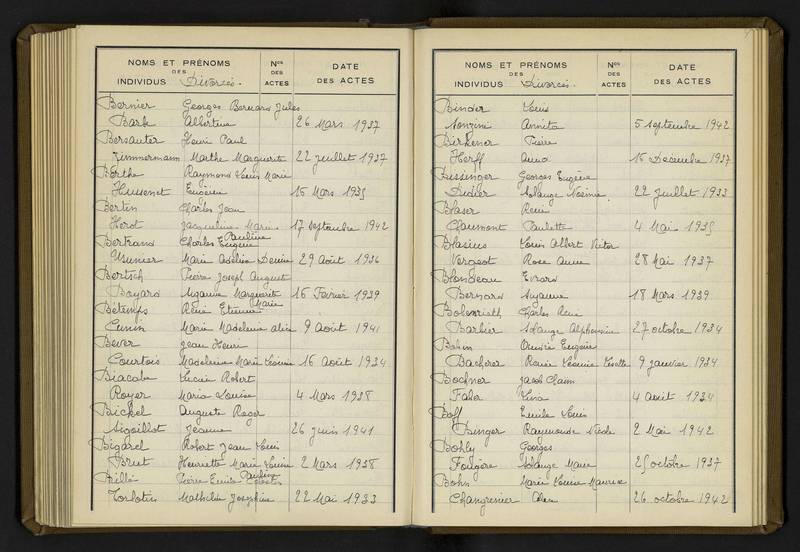 NOMS ET PRÉNOMS
DES
INDIVIDUS Divorcés.
Nos
DES
ACTES
DATE
DES ACTES
Bernier Georges Bernard Jules
Bark Albertine 26 Mars 1937
Bersauter Henri Paul
Zimmermann Marthe Marguerite 22 Juillet 1937
Berthe Raymond Louis Marie
Hussenet Eugénie 15 Mars 1935
Bertin Charles Jean
Herot Jacqueline Marie Pauline 17 septembre 1942
Bertrand Charles Eugène
Usunier Marie Adélia Denise 29 Août 1936
Bertsch Pierre Joseph Auguste
Bayard Suzanne Marguerite Marie 16 Fevrier 1939
Bétemps René Etienne
Cunin Marie Madeleine alice 9 Août 1941
Bever Jean Henri
Courtois Madeleine Marie Léonie 16 Août 1934
Biacabe Lucien Robert
Royer Maria Louise 4 Mars 1938
Bickel Auguste Roger
Aigeillot Jeanne 26 Juin 1941
Bigarel Robert Jean Louis
Bruet Henriette Marie Louise 2 Mars 1938
Pierre Emile Célestin
Torlotin Mathilde Joséphine Pauline 22 Mai 1933
NOMS ET PRÉNOMS
DES
INDIVIDUS Divorcés.
Nos
DES
ACTES
DATE
DES ACTES
Binder Louis
Sonzini Annita 5 septembre 1942
Birkener Pierre
Herff Anna 16 Decembre 1937
Bissinger Georges Eugène
Didier Solange Noémie 22 Juillet 1933
Blaser René
Chaumont Paulette 4 Mai 1935
Blasius Louis Albert Victor
Vergeot Rose Anne 28 Mai 1937
Blondeau Evrard
Bernard Suzanne 18 Mars 1939
Charles René
Barbier Solange Alphonsine 27 octobre 1934
Bohm Eugène
Bacherez Renée Léonie Lisette 9 Janvier 1934
Bochner Jacob Claim
Faber Lina 4 août 1934
Boff Emile Louis
Dinger Raymonde Nicole 2 Mai 1942
Bohly Georges
Fougère Solange Marie 25 octobre 1937
Bohn Marie Louis Maurice
Changenier Alice 26 octobre 1942